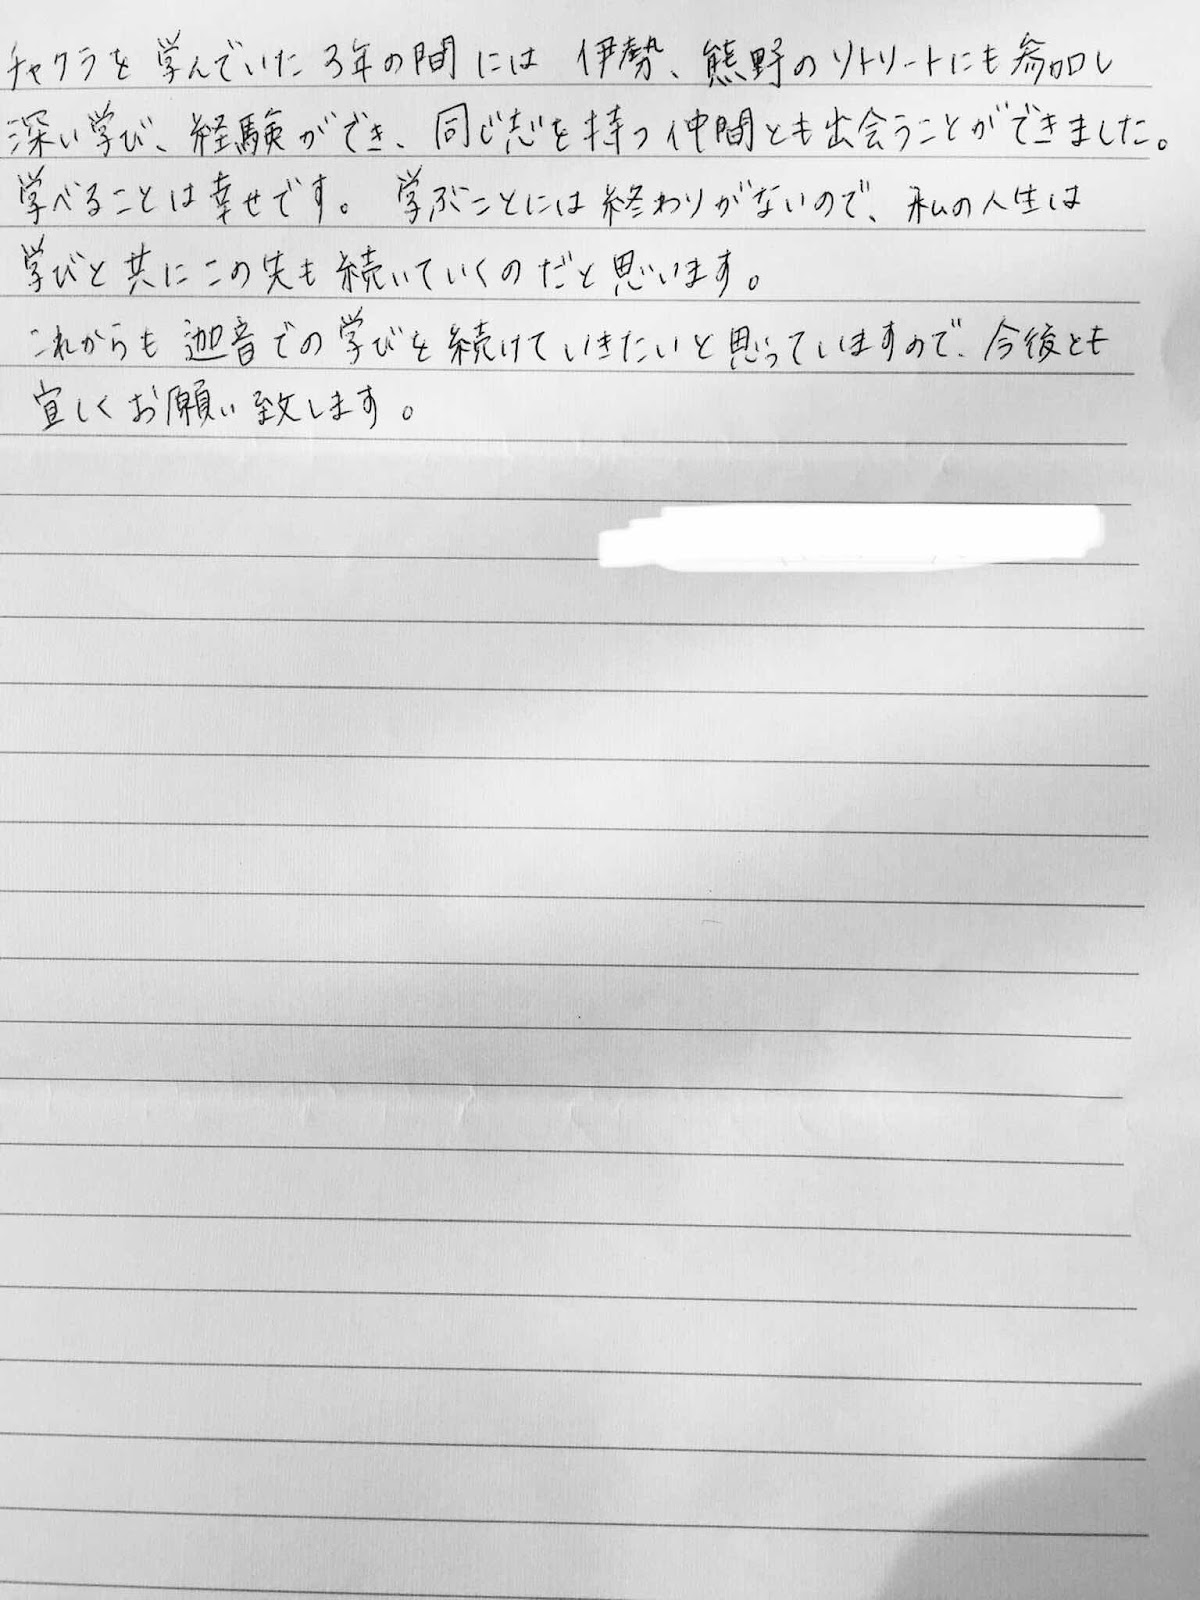 チャクラを学んでいた3年の間には 伊勢、熊野のリトリートにも参加し
深い学び、経験ができ、同じ志を持つ仲間とも出会うことができました。
学べることは幸せです。 学ぶことには終わりがないので、私の人生は
学びと共にこの先も続いていくのだと思います。
これからも迦音での学びを続けていきたいと思っていますので、今後とも
宜しくお願い致します。